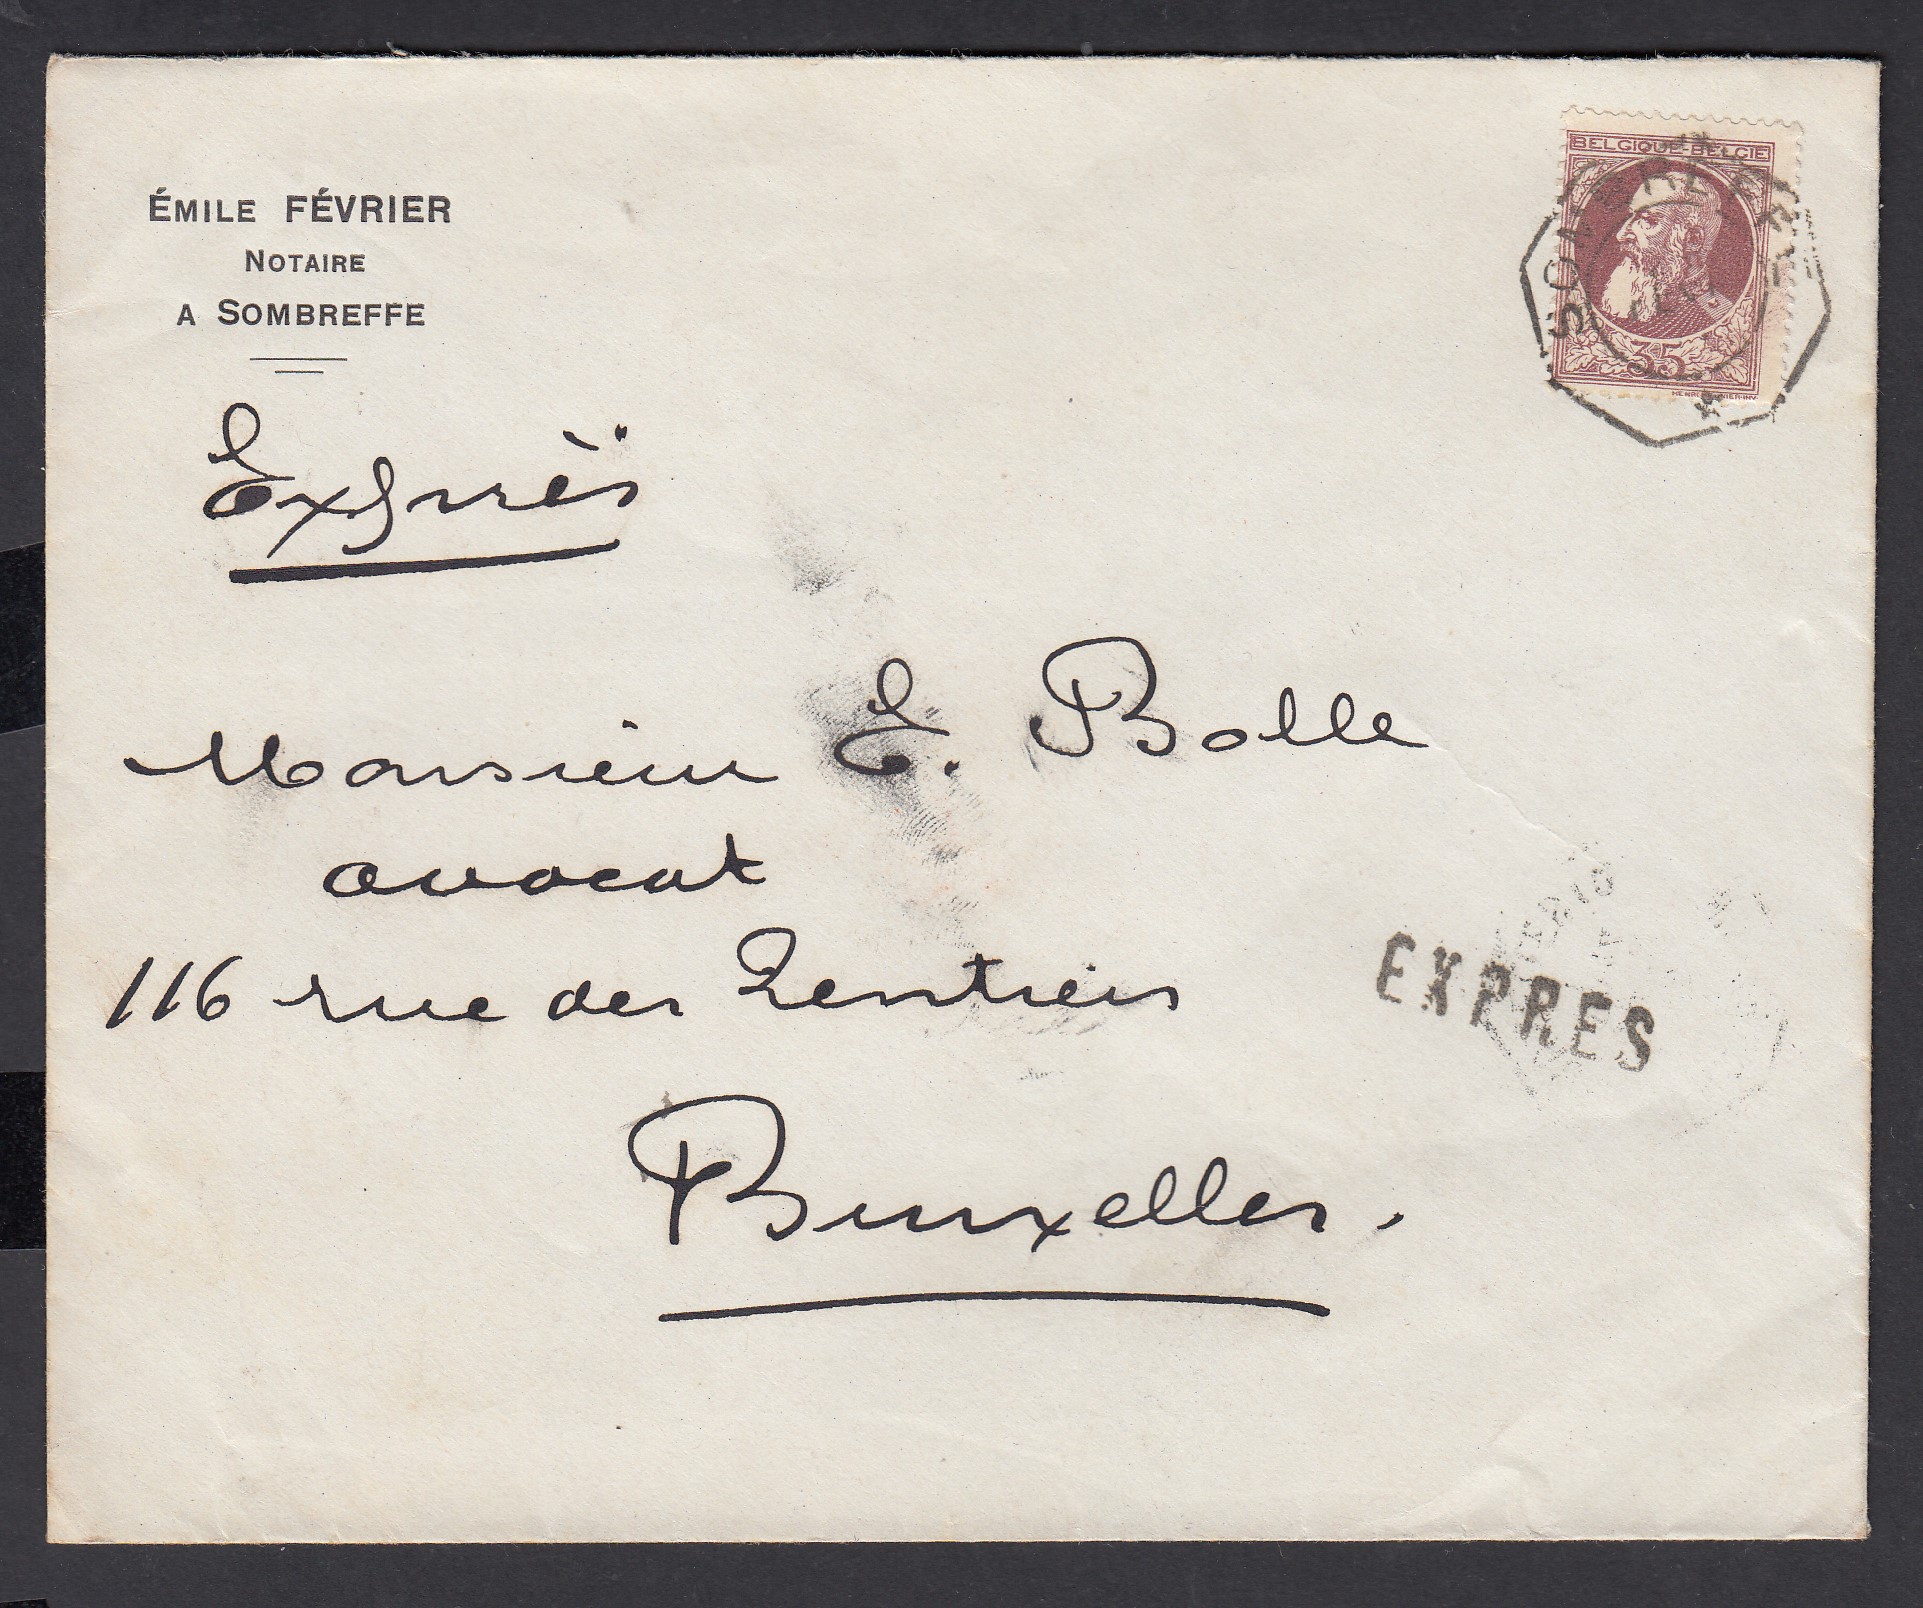 ÉMILE FÉVRIER
NOTAIRE
A SOMBREFFE
BELGIQUE BELGIË
35
SOMBREFFE
Exprès
Monsieur E. Bolle
avocat
116 rue des Rentiers
EXPRES
Bruxelles.